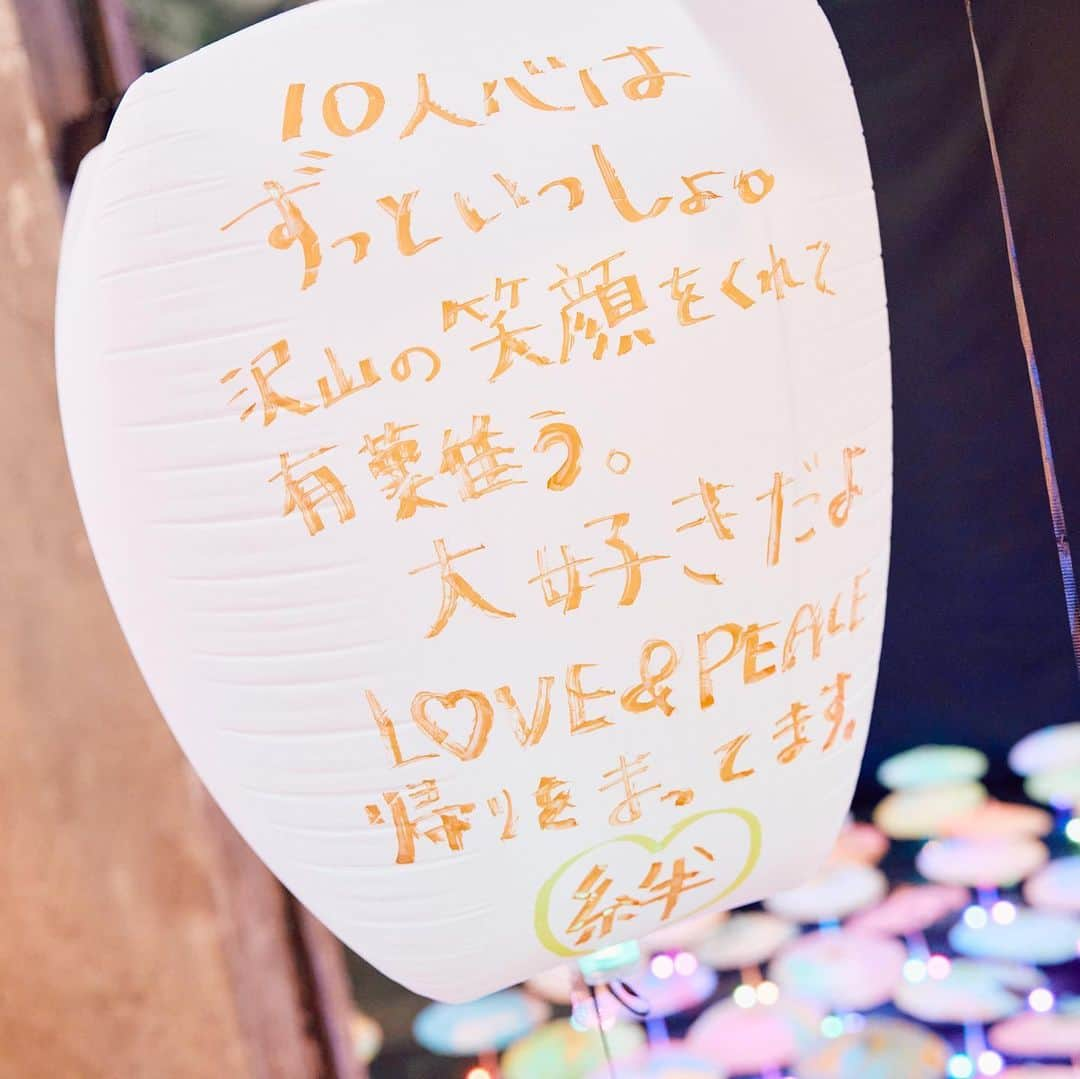 10人心は
ずっといっしょ。
沢山の笑顔をくれて
有難う。
大好きだよ
LOVE&PEACE
帰りをまってます。
絆